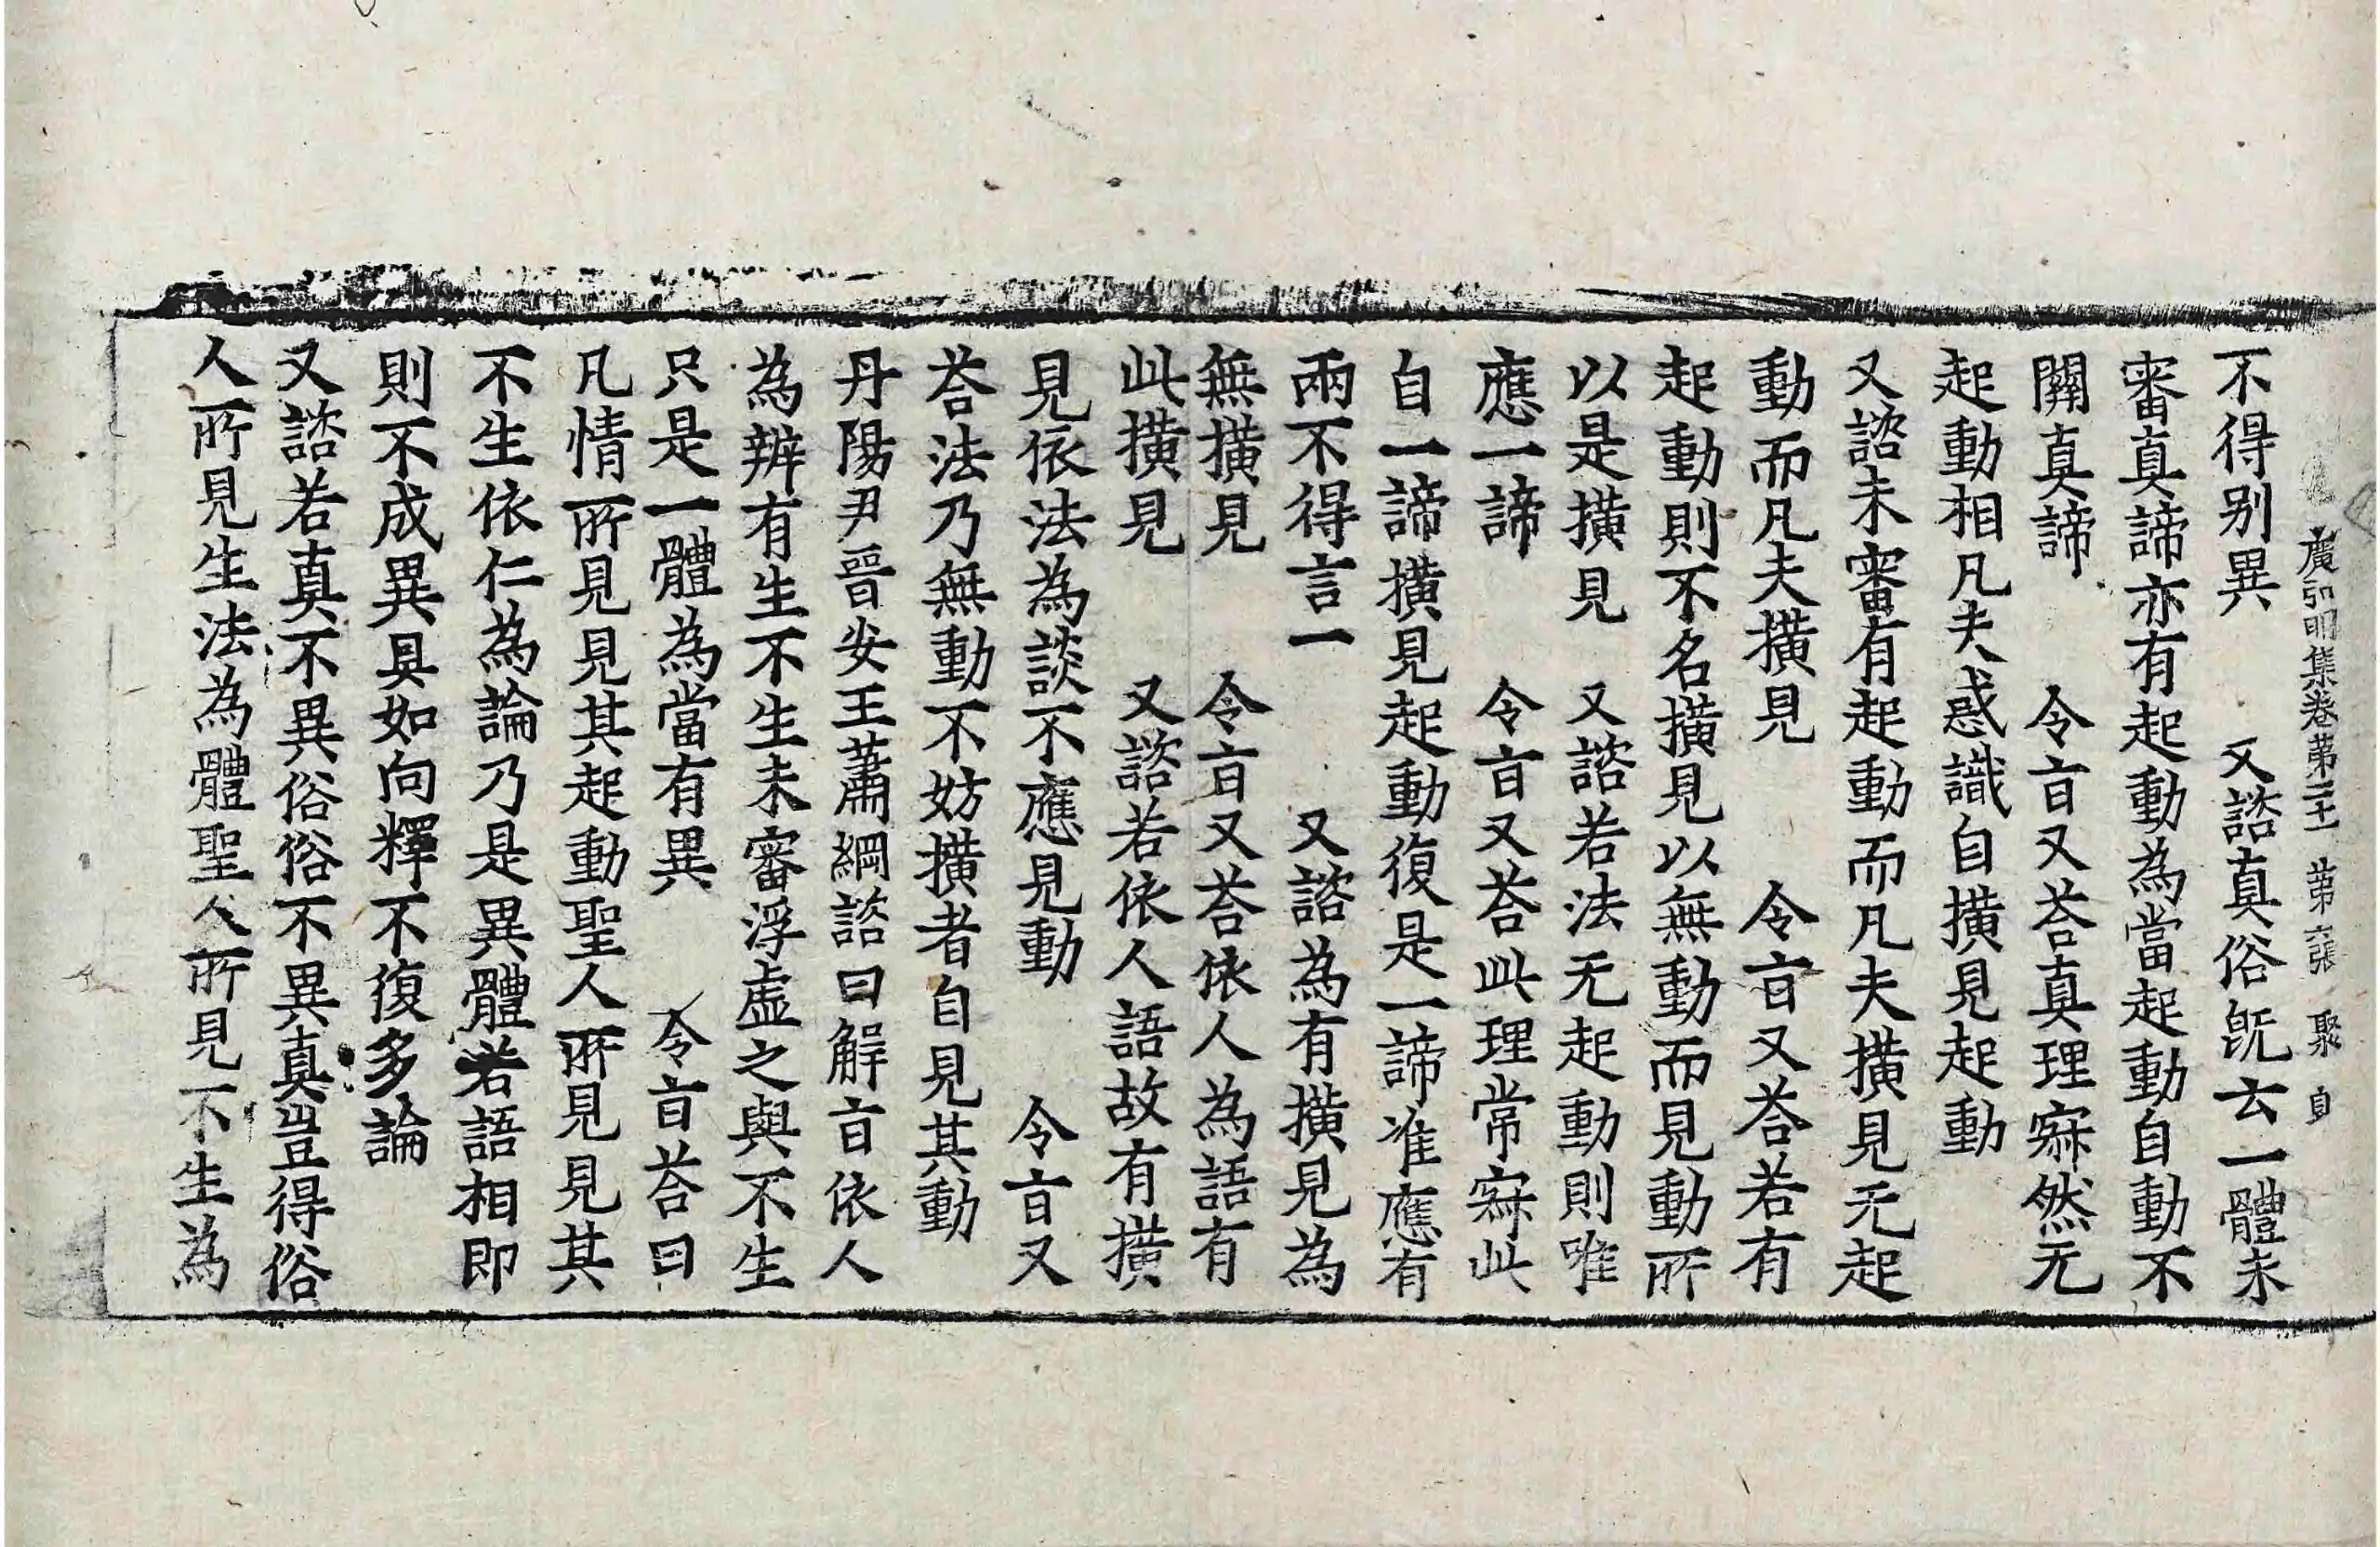 廣弘明集卷第二十一 第六張 聚 自
不得別異 又諮真俗旣云一體未
審真諦亦有起動為當起動自動不
關真諦 令㫖又荅真理寂然无
起動相凡夫惑識自撗見起動
又諮未審有起動而凡夫撗見无起
動而凡夫撗見 令㫖又荅若有
起動則不名撗見以無動而見動所
以是撗見 又諮若法无起動則唯
應一諦 令㫖又荅此理常寂此
自一諦撗見起動復是一諦准應有
兩不得言一 又諮為有撗見為
無撗見 令㫖又荅依人為語有
此撗見 又諮若依人語故有撗
見依法為談不應見動 令㫖又
荅法乃無動不妨撗者自見其動
丹陽尹晉安王蕭綱諮曰解㫖依人
為辨有生不生未審浮虛之與不生
只是一體為當有異 令㫖荅曰
凡情所見見其起動聖人所見見其
不生依仁為論乃是異體若語相即
則不成異具如向釋不復多論
又諮若真不異俗俗不異真豈得俗
人所見生法為體聖人所見不生為